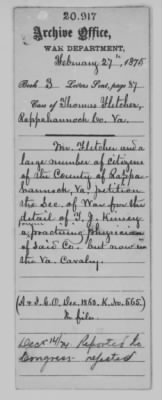 20.917
Archive Office,
WAR DEPARTMENT,
February 27th, 1875
Book 3 Letters Sent, page 87
Case of Thomas Fletcher,
Rappahannock Co. Va.
Mr. Fletcher and a
large number of citizens
of the County of Rappa-
hannock, Va. petition
the Sec. of War for the
detail of T. J. Kinsey
a practicing physician
of said Co. but now in
the Va. Cavalry.
(A & I. G. O. Dec. 1863, K. No. 665.)
File
Decr 14/74 Reported to
Congress - rejected